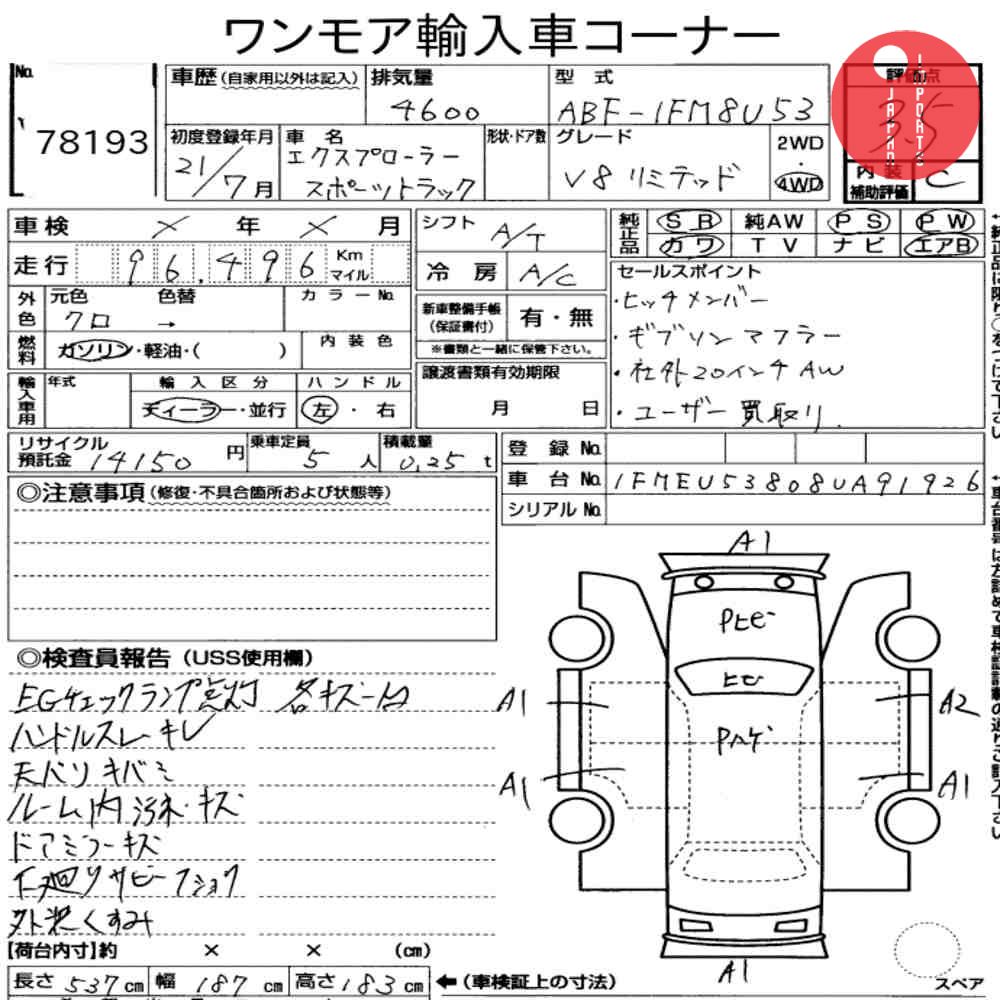 ワンモア輸入車コーナー
No. 78193
車歴 (自家用以外は記入)
排気量 4600
型式 ABF-1FM8U53
評価点 3.5
JAPAN IMPORTS
初度登録年月 21/7月
車名 エクスプローラー スポーツトラック
形状・ドア数
グレード V8 リミテッド
2WD・4WD
内装補助評価 C
車検 × 年 × 月
走行 96,496 Km マイル
シフト A/T
冷房 A/C
純正品 SR 純AW PS PW
カワ TV ナビ エアB
外色 元色 クロ 色替 → カラーNo.
燃料 ガソリン・軽油・( )
内装色
新車整備手帳(保証書付) 有・無
※書類と一緒に保管下さい。
セールスポイント
・ヒッチメンバー
・ギブソンマフラー
・社外20インチAW
・ユーザー買取り
輸入車用 年式
輸入区分 ディーラー・並行
ハンドル 左・右
譲渡書類有効期限 月 日
リサイクル預託金 14150円
乗車定員 5人
積載量 0.25t
登録No.
車台No. 1FMEU53808UA91926
シリアルNo.
◎注意事項(修復・不具合箇所および状態等)
◎検査員報告(USS使用欄)
EGチェックランプ点灯 各キズ一凹
ハンドルスレ・キレ
天バリキバミ
ルーム内汚れ・キズ
ドアミラーキズ
下廻りサビ・フショク
外装くすみ
A1
PヒビP
ヒビ
Pハゲ
A1
A2
A1
A1
A1
【荷台内寸】約 × × (cm)
長さ 537cm 幅 187cm 高さ 183cm
←(車検証上の寸法)
スペア